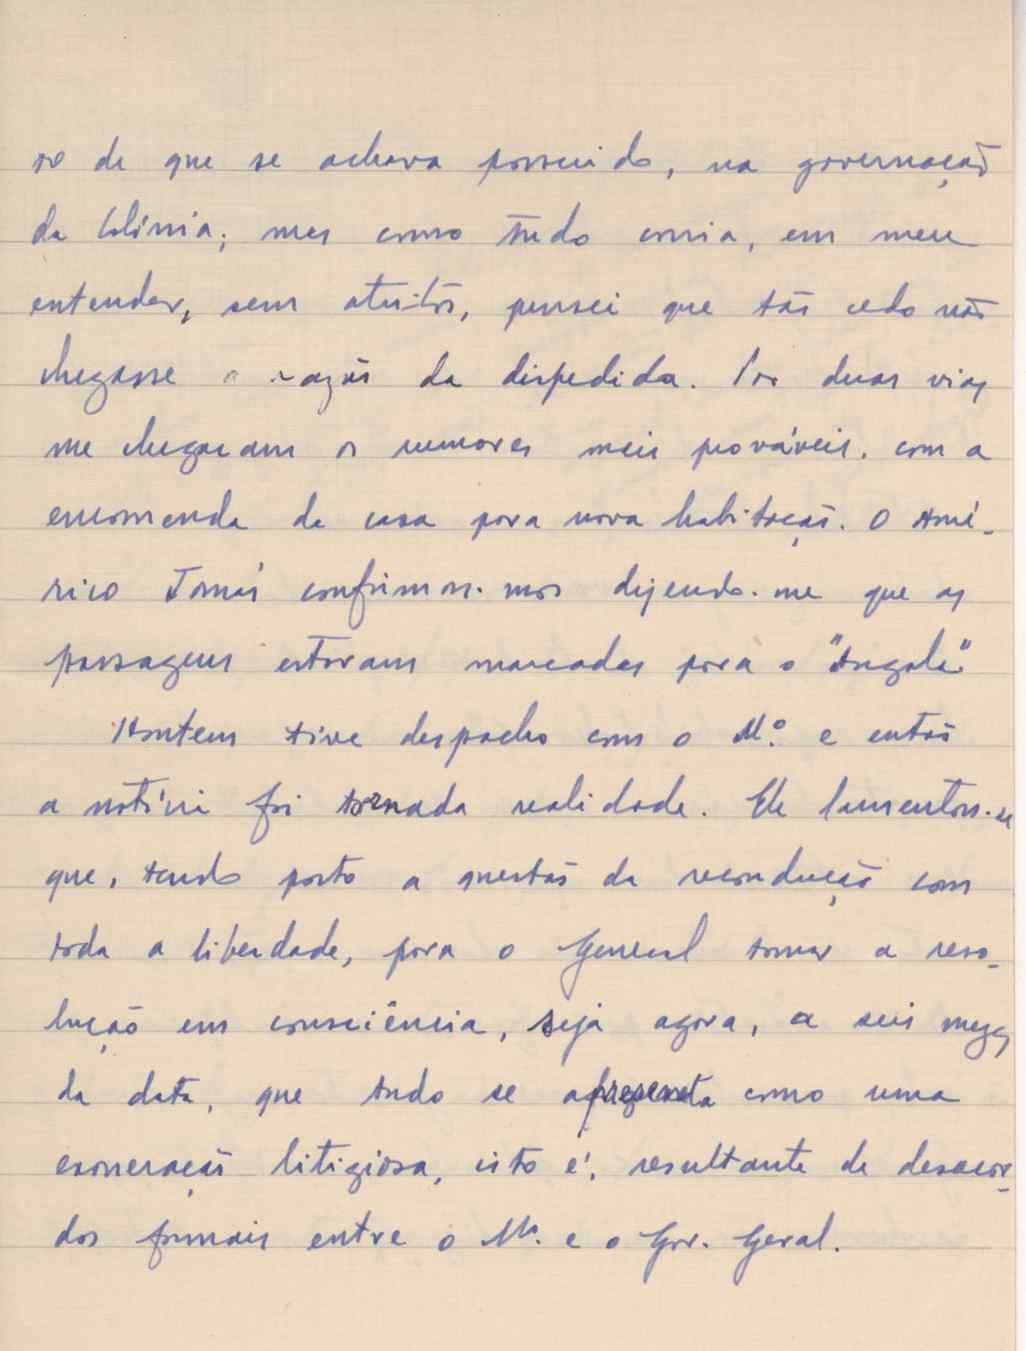 so de que se achava possuido, na governação
da Colónia; mas como tudo corria, em meu
entender, sem atritos, pensei que tão cedo não
chegasse a razão da despedida. Por duas vias
me chegaram os rumores mais prováveis. com a
encomenda de casa para nova habitação. O Amé-
rico Tomás confirmou-mos dizendo-me que as
passagens estavam marcadas para o "Angola"
Hontem tive despacho com o M.º e então
a notícia foi tornada realidade. Ele lamentou-se
que, tendo posto a questão da recondução com
toda a liberdade, para o General tomar a reso-
lução em consciência, seja agora, a seis mezes
da data, que tudo se apresenta como uma
exoneração litigiosa, isto é, resultante de desacor-
dos formais entre o M.º e o Gov. Geral.